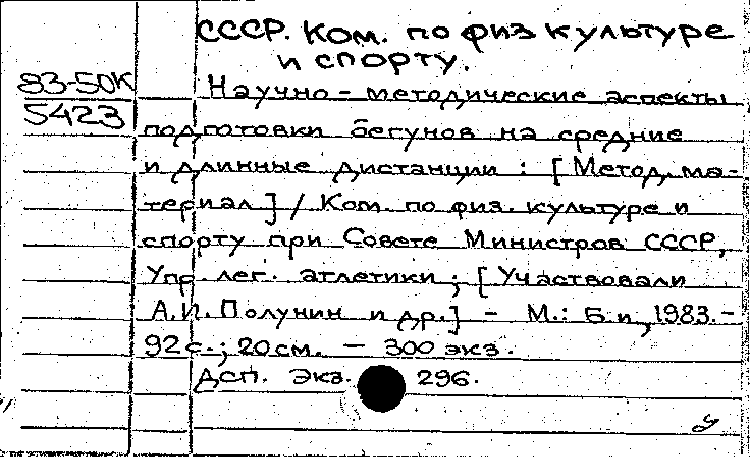 СССР. Ком. по физ культуре
и спорту.
83-50К
5423
Научно-методические аспекты
подготовки бегунов на средние
и длинные дистанции : [Метод. ма-
териал] / Ком. по физ. культуре и
спорту при Совете Министров СССР,
Упр. лег. атлетики ; [Участвовали
А.И. Полунин и др.] - М.: Б.и., 1983. -
92 с.; 20 см. - 300 экз.
ДСП. Экз. 296.